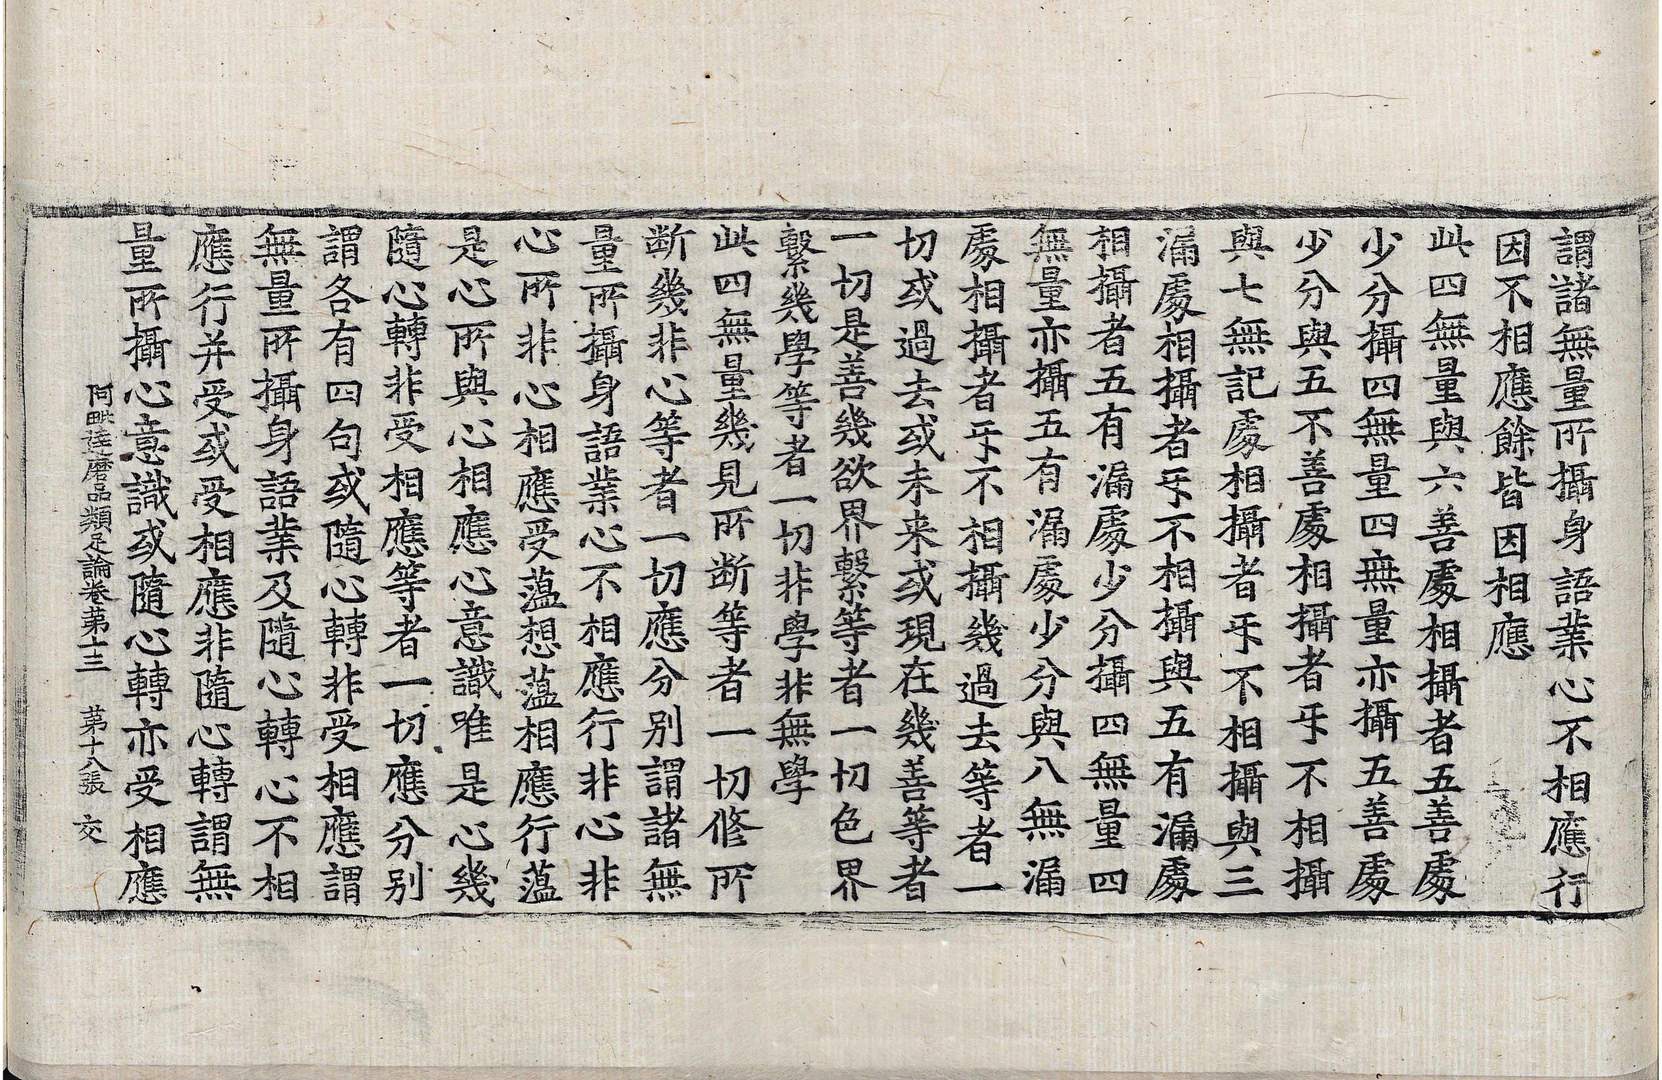 謂諸無量所攝身語業心不相應行
因不相應餘皆因相應
此四無量與六善處相攝者五善處
少分攝四無量四無量亦攝五善處
少分與五不善處相攝者㸦不相攝
與七無記處相攝者㸦不相攝與三
漏處相攝者㸦不相攝與五有漏處
相攝者五有漏處少分攝四無量四
無量亦攝五有漏處少分與八無漏
處相攝者㸦不相攝幾過去等者一
切或過去或未来或現在幾善等者
一切是善幾欲界繫等者一切色界
繫幾學等者一切非學非無學
此四無量幾見所断等者一切修所
断幾非心等者一切應分別謂諸無
量所攝身語業心不相應行非心非
心所非心相應受藴想藴相應行藴
是心所與心相應心意識唯是心幾
隨心轉非受相應等者一切應分別
謂各有四句或隨心轉非受相應謂
無量所攝身語業及隨心轉心不相
應行并受或受相應非隨心轉謂無
量所攝心意識或隨心轉亦受相應
阿毗達磨品類足論卷第十三 第十八張 交